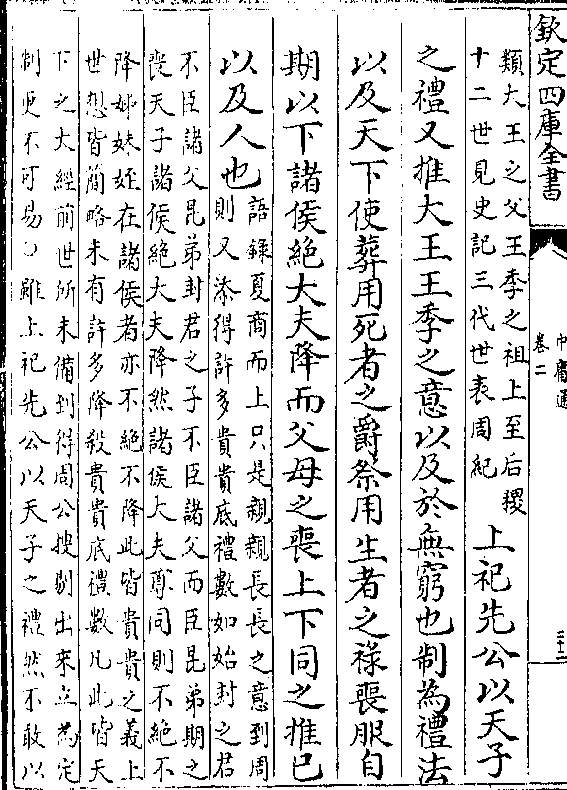 欽定四庫全書
中庸通
卷二
類大王之父王季之祖上至后稷
十二世見史記三代世表周紀
上祀先公以天子
之禮又推大王王季之意以及於無窮也制為禮法
以及天下使葬用死者之爵祭用生者之祿喪服自
期以下諸侯絕大夫降而父母之喪上下同之推已
以及人也
語錄夏商而上只是親親長長之意到周
則又添得許多貴貴底禮數如始封之君
不臣諸父昆弟封君之子不臣諸父而臣昆弟期之
喪天子諸侯絕大夫降然諸侯大夫尊同則不絕不
降姊妹姪在諸侯者亦不絕不降此皆貴貴之義上
世想皆簡略未有許多降殺貴貴底禮數凡此皆天
下之大經前世所未備到得周公搜剔出來立為定
制更不可易○雖上祀先公以天子之禮然不敢以